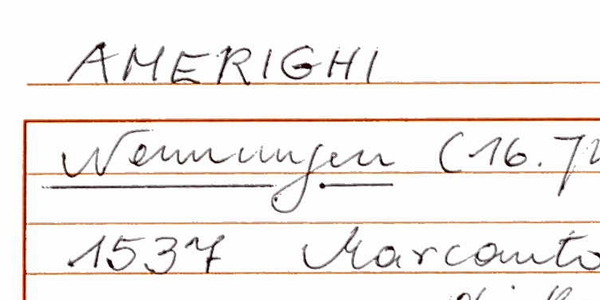 AMERIGHI
Nennungen (16. J
1537 Marcanto